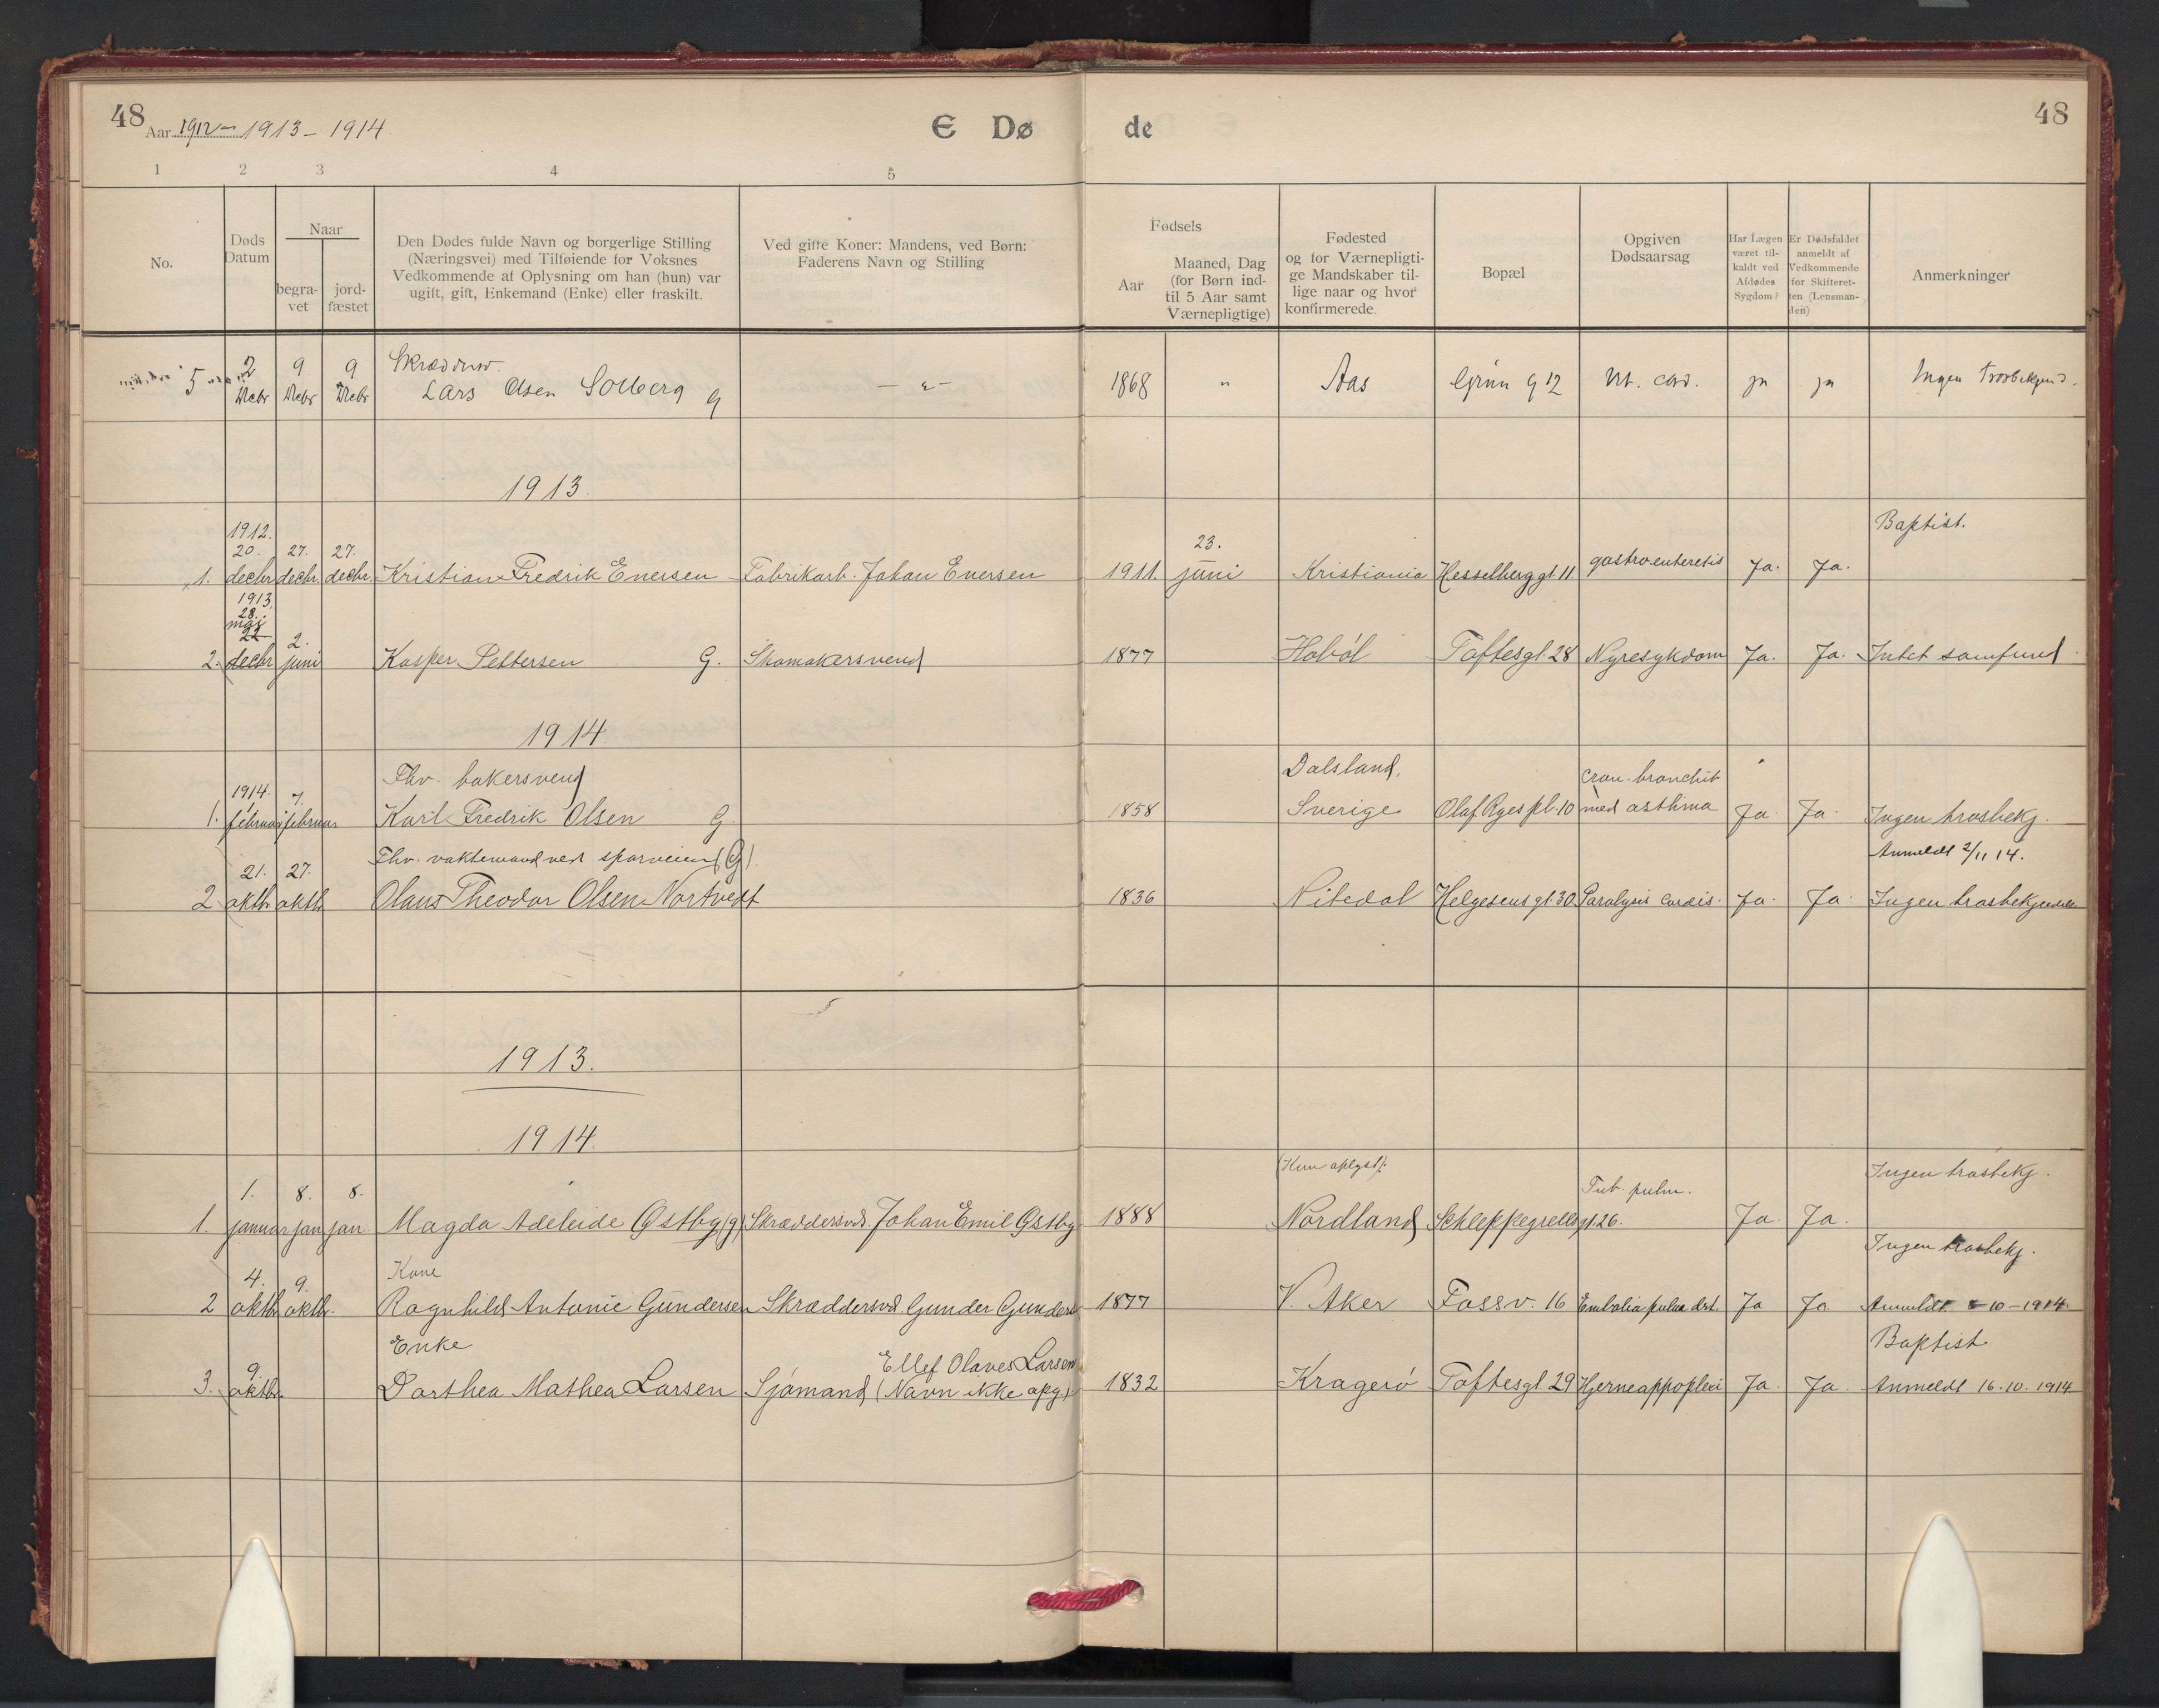 48 Aar 1912 – 1913 – 1914
E Dø de
48
1 2 3 4 5
No.
Døds Datum
Naar
begra-vet
jord-fæstet
Den Dødes fulde Navn og borgerlige Stilling
(Næringsvei) med Tilføiende for Voksnes
Vedkommende af Oplysning om han (hun) var
ugift, gift, Enkemand (Enke) eller fraskilt.
Ved gifte Koner: Mandens, ved Børn:
Faderens Navn og Stilling
Fødsels
Aar
Maaned, Dag
(for Børn ind-
til 5 Aar samt
Værnepligtige)
Fødested
og for Værnepligti-
ge Mandskaber til-
lige naar og hvor
konfirmerede.
Bopæl
Opgiven
Dødsaarsag
Har Lægen
været til-
kaldt ved
Afdødes
Sygdom?
Er Dødsfaldet
anmeldt af
Vedkommende
for Skifteret-
ten (Lensman-
den)
Anmerkninger
2 9 9 Skræddersv.
5 Decbr Decbr Decbr Lars Olsen Solberg g — " — 1868 " Aas Grün g 12 Vit. cord. ja ja Ingen Trosbekjend.
1913.
1912. Baptist.
20. 27. 27. 23.
1. decbr decbr. decbr. Kristian Fredrik Enersen Fabrikarb. Johan Enersen 1911. juni Kristiania Hesselberggt. 11. gastroenteretis Ja. Ja.
1913.
28.
mai
22 2.
2. decbr juni Kasper Pettersen G. Skomakersvend 1877 Hobøl Toftesgt 28 Nyresykdom Ja. Ja. Intet samfund.
1914
Fhv. bakersvend Dalsland, cron. bronchit
1914. 7.
1. februar februar Karl Fredrik Olsen G. 1858 Sverige Olaf Ryes pl. 10 med asthma Ja. Ja. Ingen trosbekj.
Fhv. vaktemand ved sporveien (G). Anmeldt 2/11 14.
21. 27.
2 oktb. oktb. Olaus Theodor Olsen Nortvedt 1836 Nitedal Helgesens gt. 30. Paralysis cordis. Ja. Ja. Ingen trosbekjendelse
1913.
1914.
(Kun oplyst): Ingen trosbekj.
1. 8. 8. Tub. pulm.
1. januar jan jan. Magda Adeleide Østby (g) Skræddersvd. Johan Emil Østby 1888 Nordland Schleppegrells gt 26. Ja. Ja.
Kone Ingen trosbekj.
4. 9.
2 oktb. oktb. Ragnhild Antonie Gundersen Skræddersvd Gunder Gunders. 1877 V. Aker Fossv. 16 Embolia pulm. dxt. Ja Ja Anmeldt 10 – 1914.
Enke Ellef Olaves Larsen Baptist
9.
3. oktb. Dorthea Mathea Larsen Sjømand (Navn ikke opg.) 1832 Kragerø Toftesgt 29 Hjerneappoplexi Ja. Ja Anmeldt 16. 10. 1914